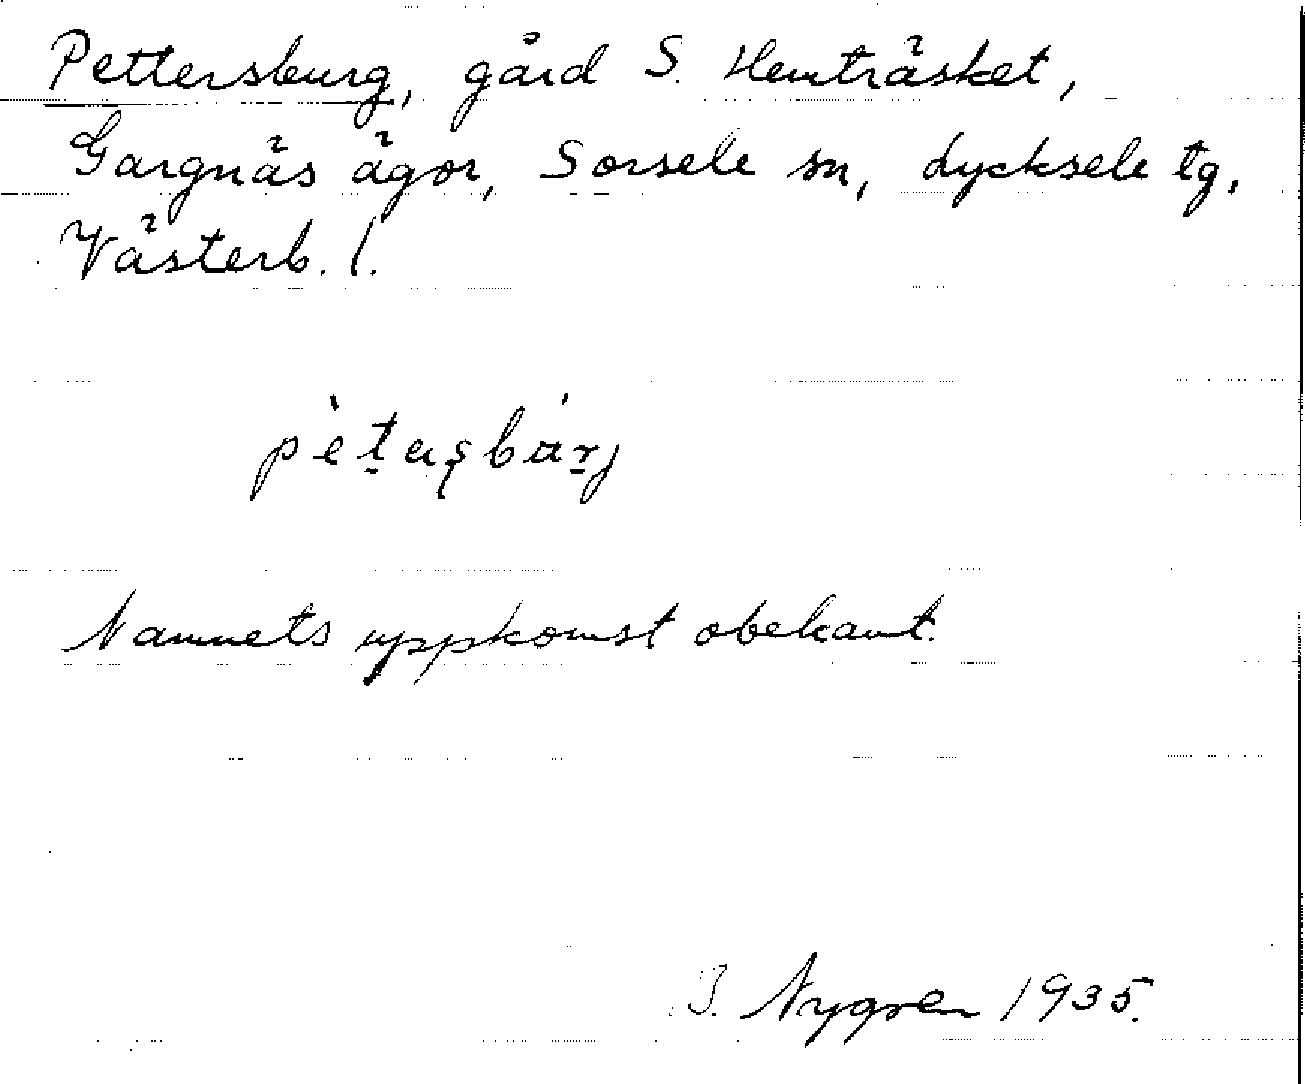 Pettersburg, gård S. Hemträsket,
Gargnäs ägor, Sorsele sn, Lycksele tg,
Västerb. l.
Namnets uppkomst obekant.
J. Nygren 1935.